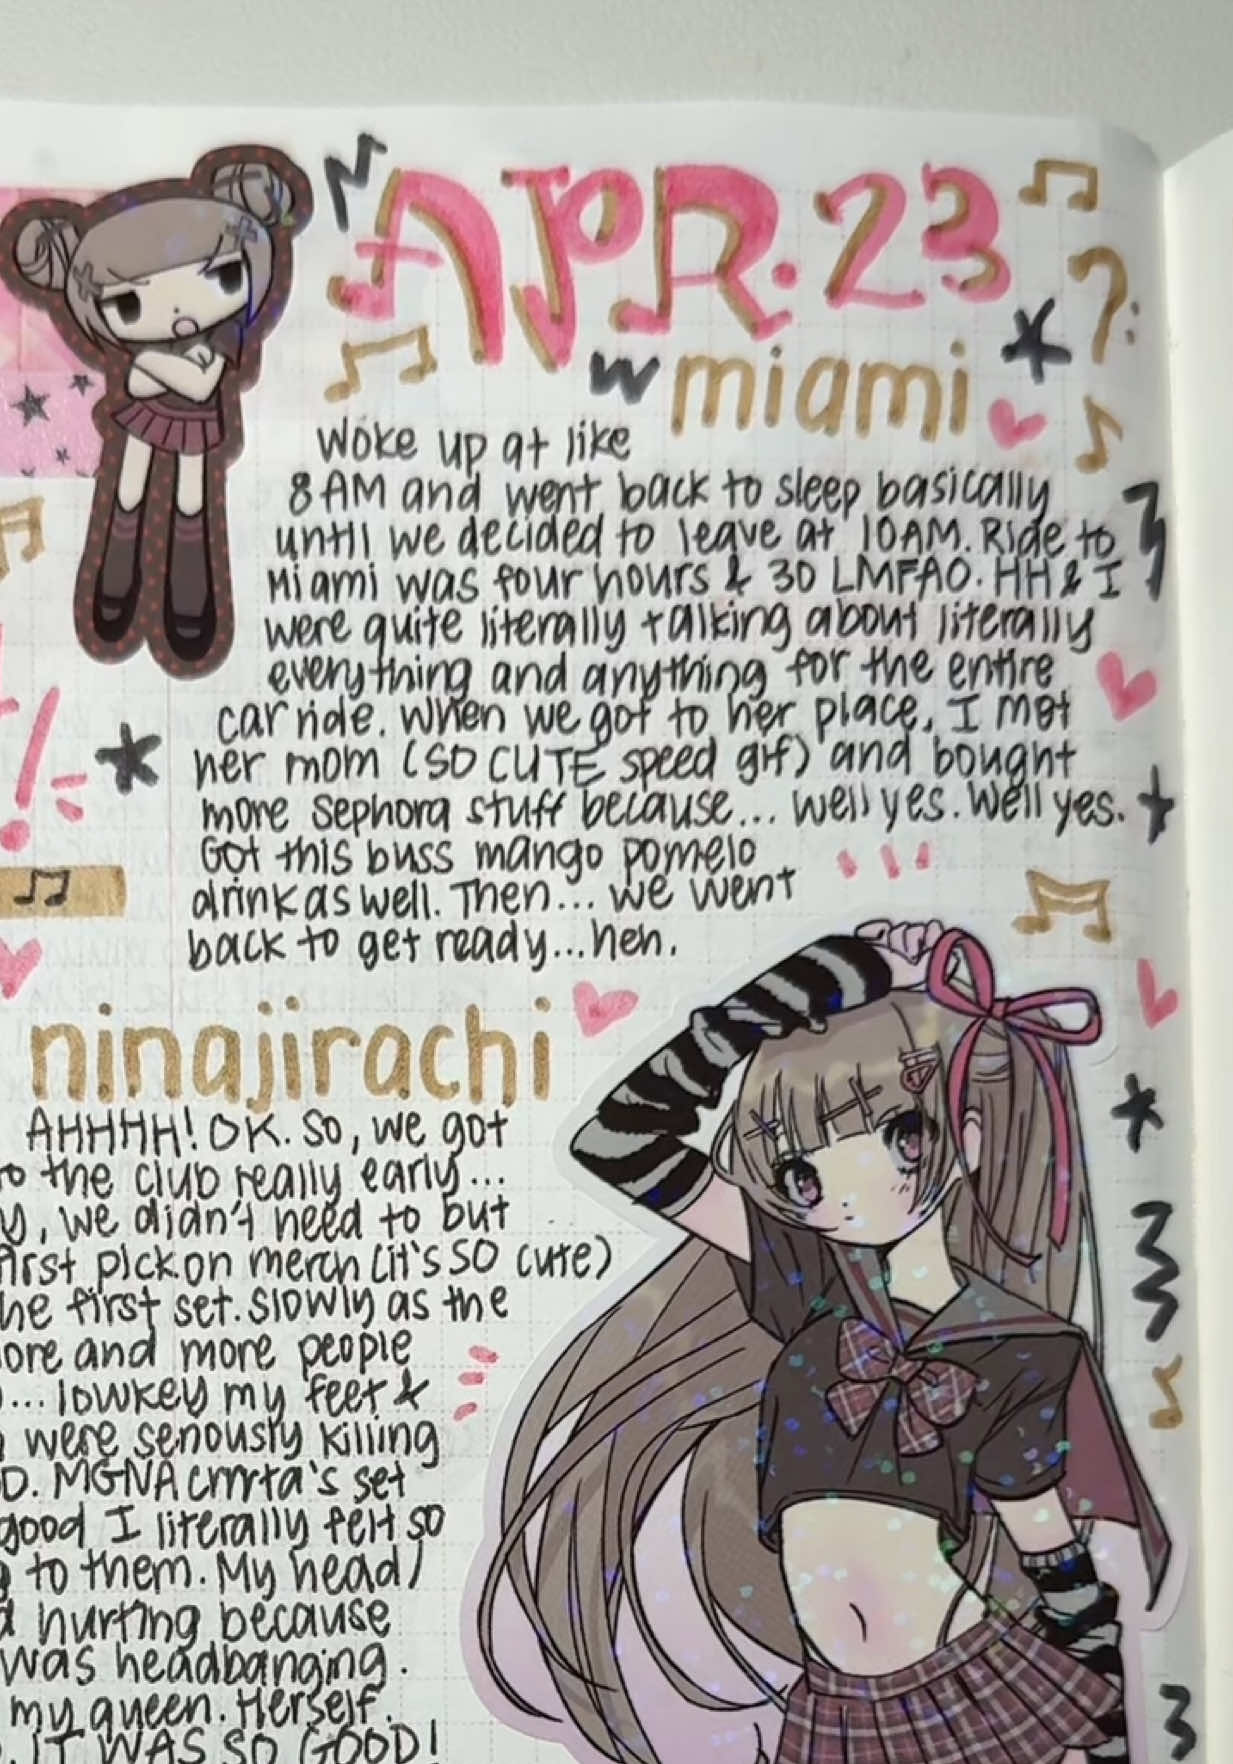 APR. 23
w miami
Woke up at like
8 AM and went back to sleep basically
until we decided to leave at 10AM. Ride to
Miami was four hours & 30 LMFAO. HH & I
were quite literally talking about literally
everything and anything for the entire
car ride. When we got to her place, I met
her mom (SO CUTE speed gif) and bought
more sephora stuff because... well yes. Well yes.
Got this buss mango pomelo
drink as well. Then... we went
back to get ready...heh.
ninajirachi
AHHHH! OK. So, we got
to the club really early...
, we didn't need to but
first pick on merch (it's SO cute)
the first set. Slowly as the
more and more people
... lowkey my feet &
were seriously killing
D. MGNA Crrrta's set
good I literally felt so
to them. My head /
hurting because
was headbanging.
my queen. Herself.
IT WAS SO GOOD!